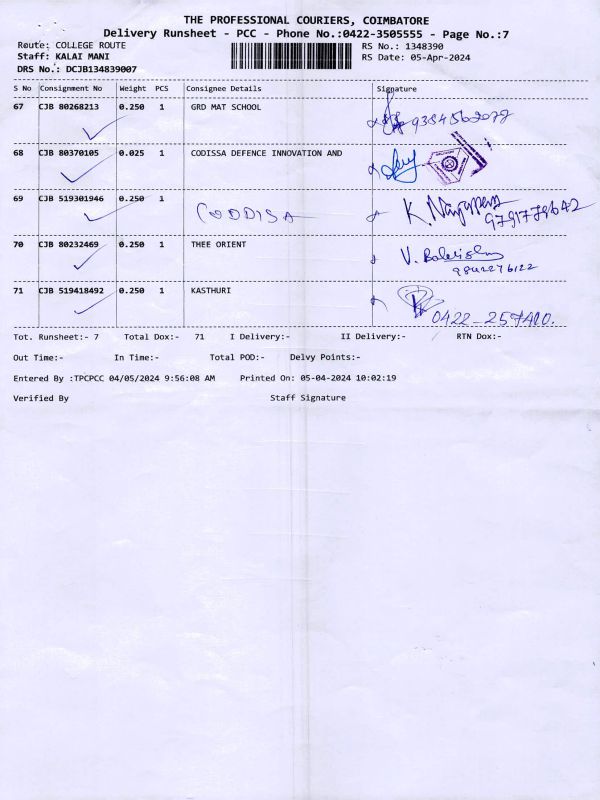 THE PROFESSIONAL COURIERS, COIMBATORE
Delivery Runsheet - PCC - Phone No.:0422-3505555 - Page No.:7
Route: COLLEGE ROUTE RS No.: 1348390
Staff: KALAI MANI RS Date: 05-Apr-2024
DRS No.: DCJB134839007
S No Consignment No Weight PCS Consignee Details Signature
67 CJB 80268213 0.250 1 GRD MAT SCHOOL
68 CJB 80370105 0.025 1 CODISSA DEFENCE INNOVATION AND
69 CJB 519301946 0.250 1 CODDISA K.
9791779642
70 CJB 80232469 0.250 1 THEE ORIENT V.
9842276122
71 CJB 519418492 0.250 1 KASTHURI
0422-257410.
Tot. Runsheet:- 7 Total Dox:- 71 I Delivery:- II Delivery:- RTN Dox:-
Out Time:- In Time:- Total POD:- Delvy Points:-
Entered By :TPCPCC 04/05/2024 9:56:08 AM Printed On: 05-04-2024 10:02:19
Verified By Staff Signature